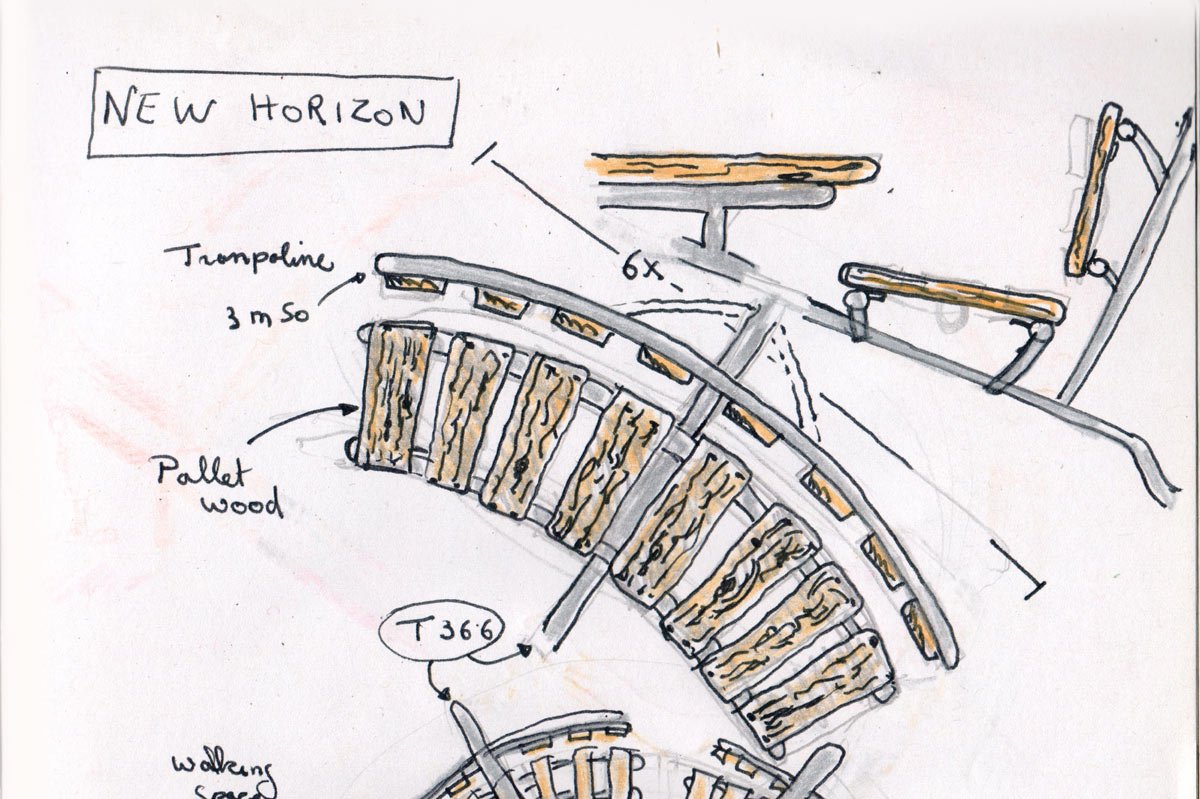 NEW HORIZON
6x
Trampoline
3 m 50
Pallet
wood
T 36.6
Walking
Space